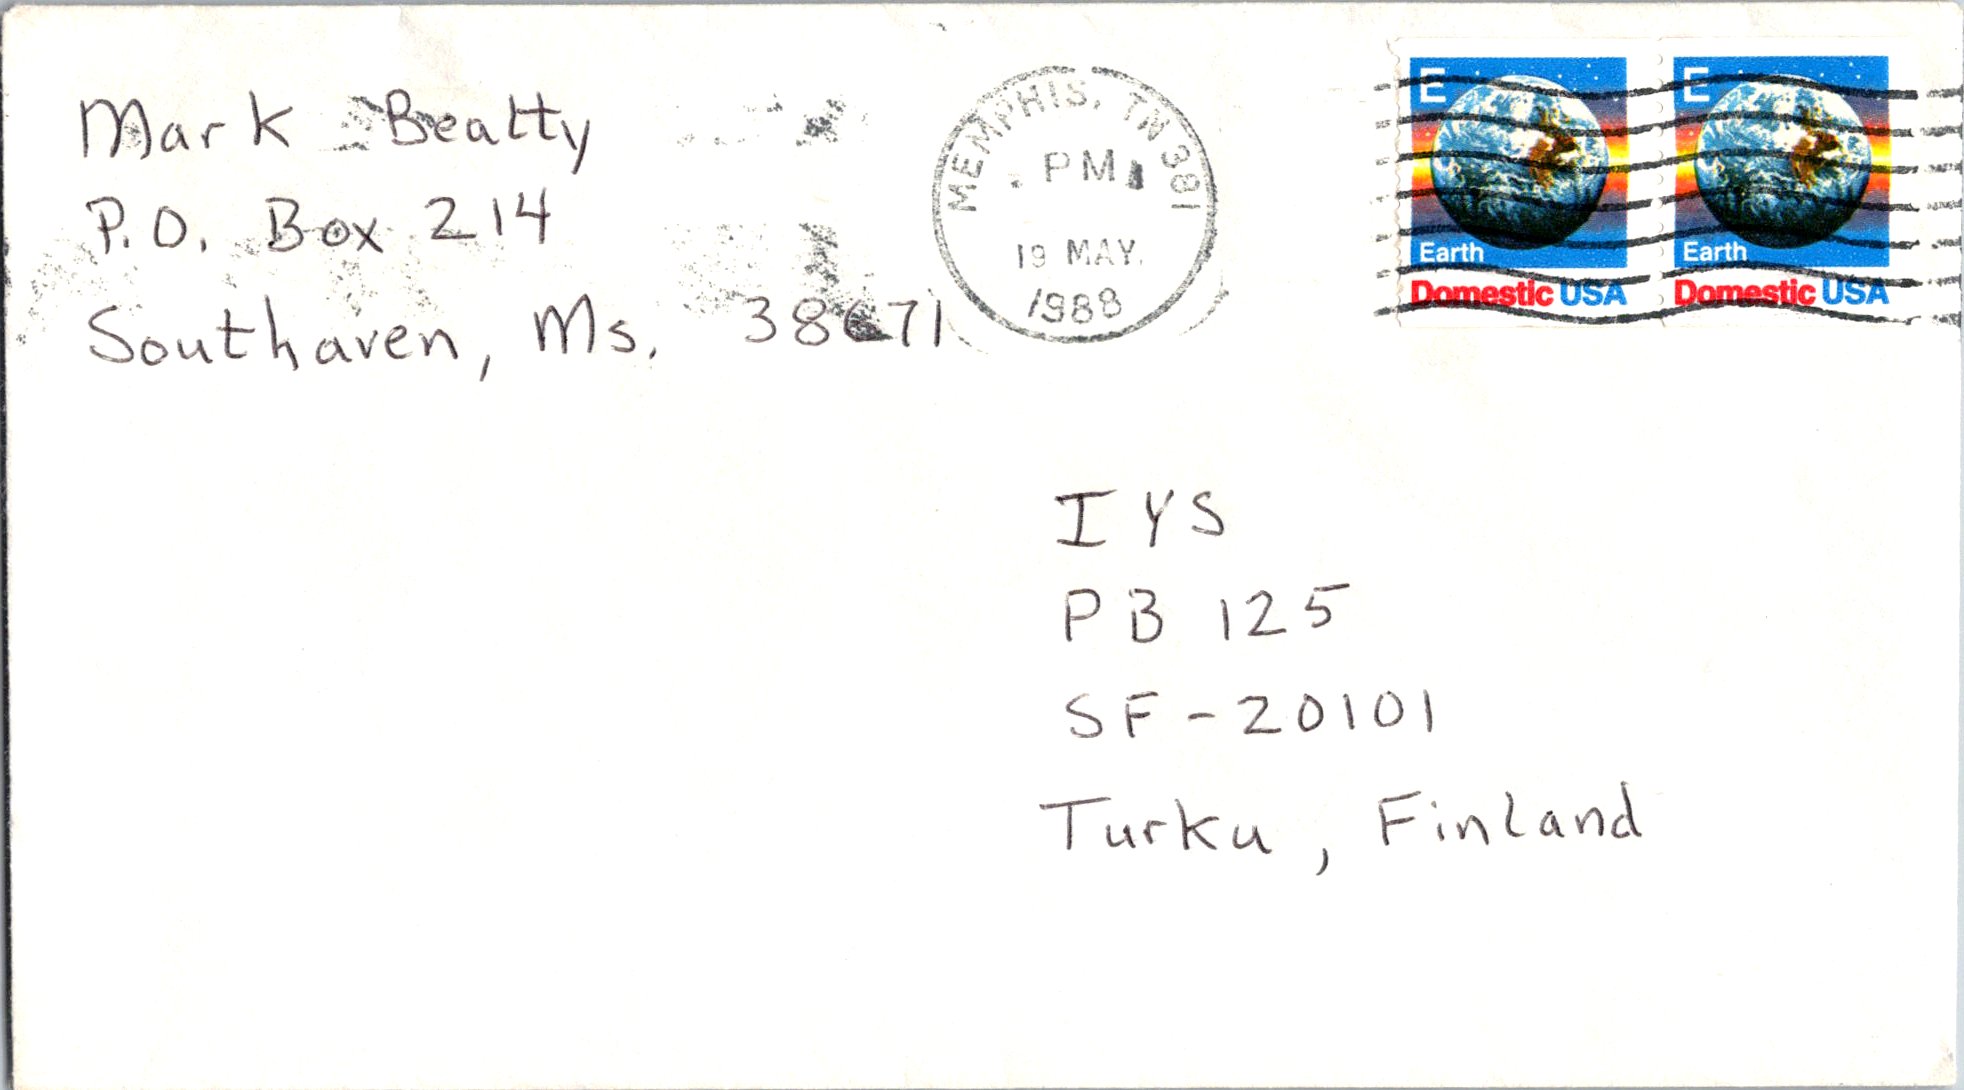 Mark Beatty
P.O. Box 214
Southaven, Ms. 38671
MEMPHIS, TN 381
PM
19 MAY.
1988
E
Earth
Domestic USA
E
Earth
Domestic USA
IYS
PB 125
SF-20101
Turku, Finland